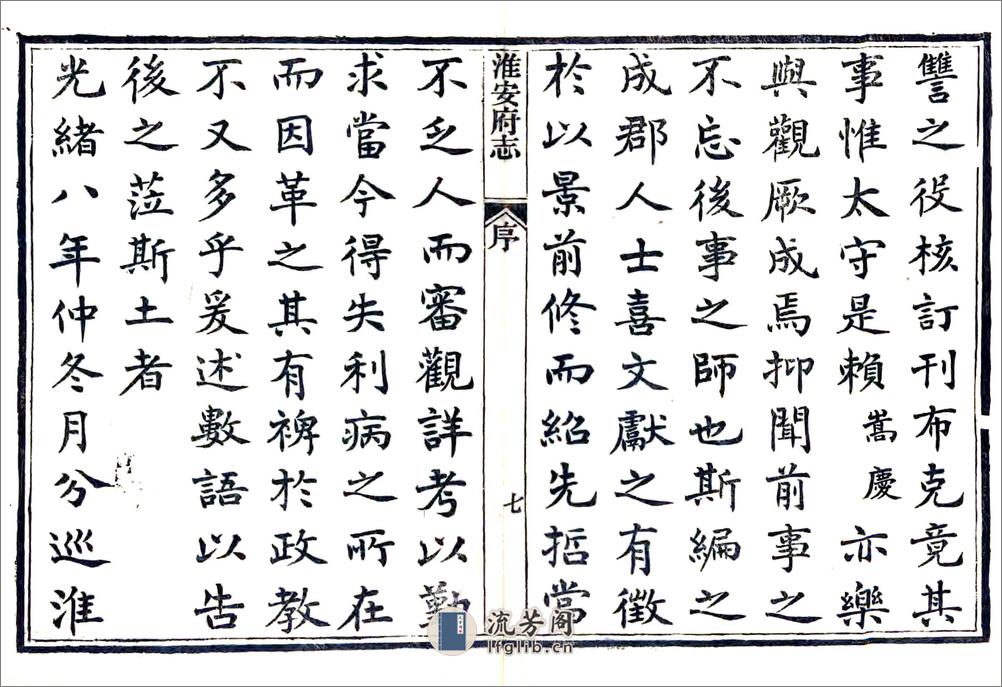 讐之役核訂刊布克竟其
事惟太守是賴嵩慶亦樂
與觀厥成焉抑聞前事之
不忘後事之師也斯編之
成郡人士喜文獻之有徵
於以景前修而紹先哲當
淮安府志
序
七
不乏人而審觀詳考以勤
求當今得失利病之所在
而因革之其有裨於政教
不又多乎爰述數語以告
後之蒞斯土者
光緒八年仲冬月分巡淮
流芳阁
lfglib.cn